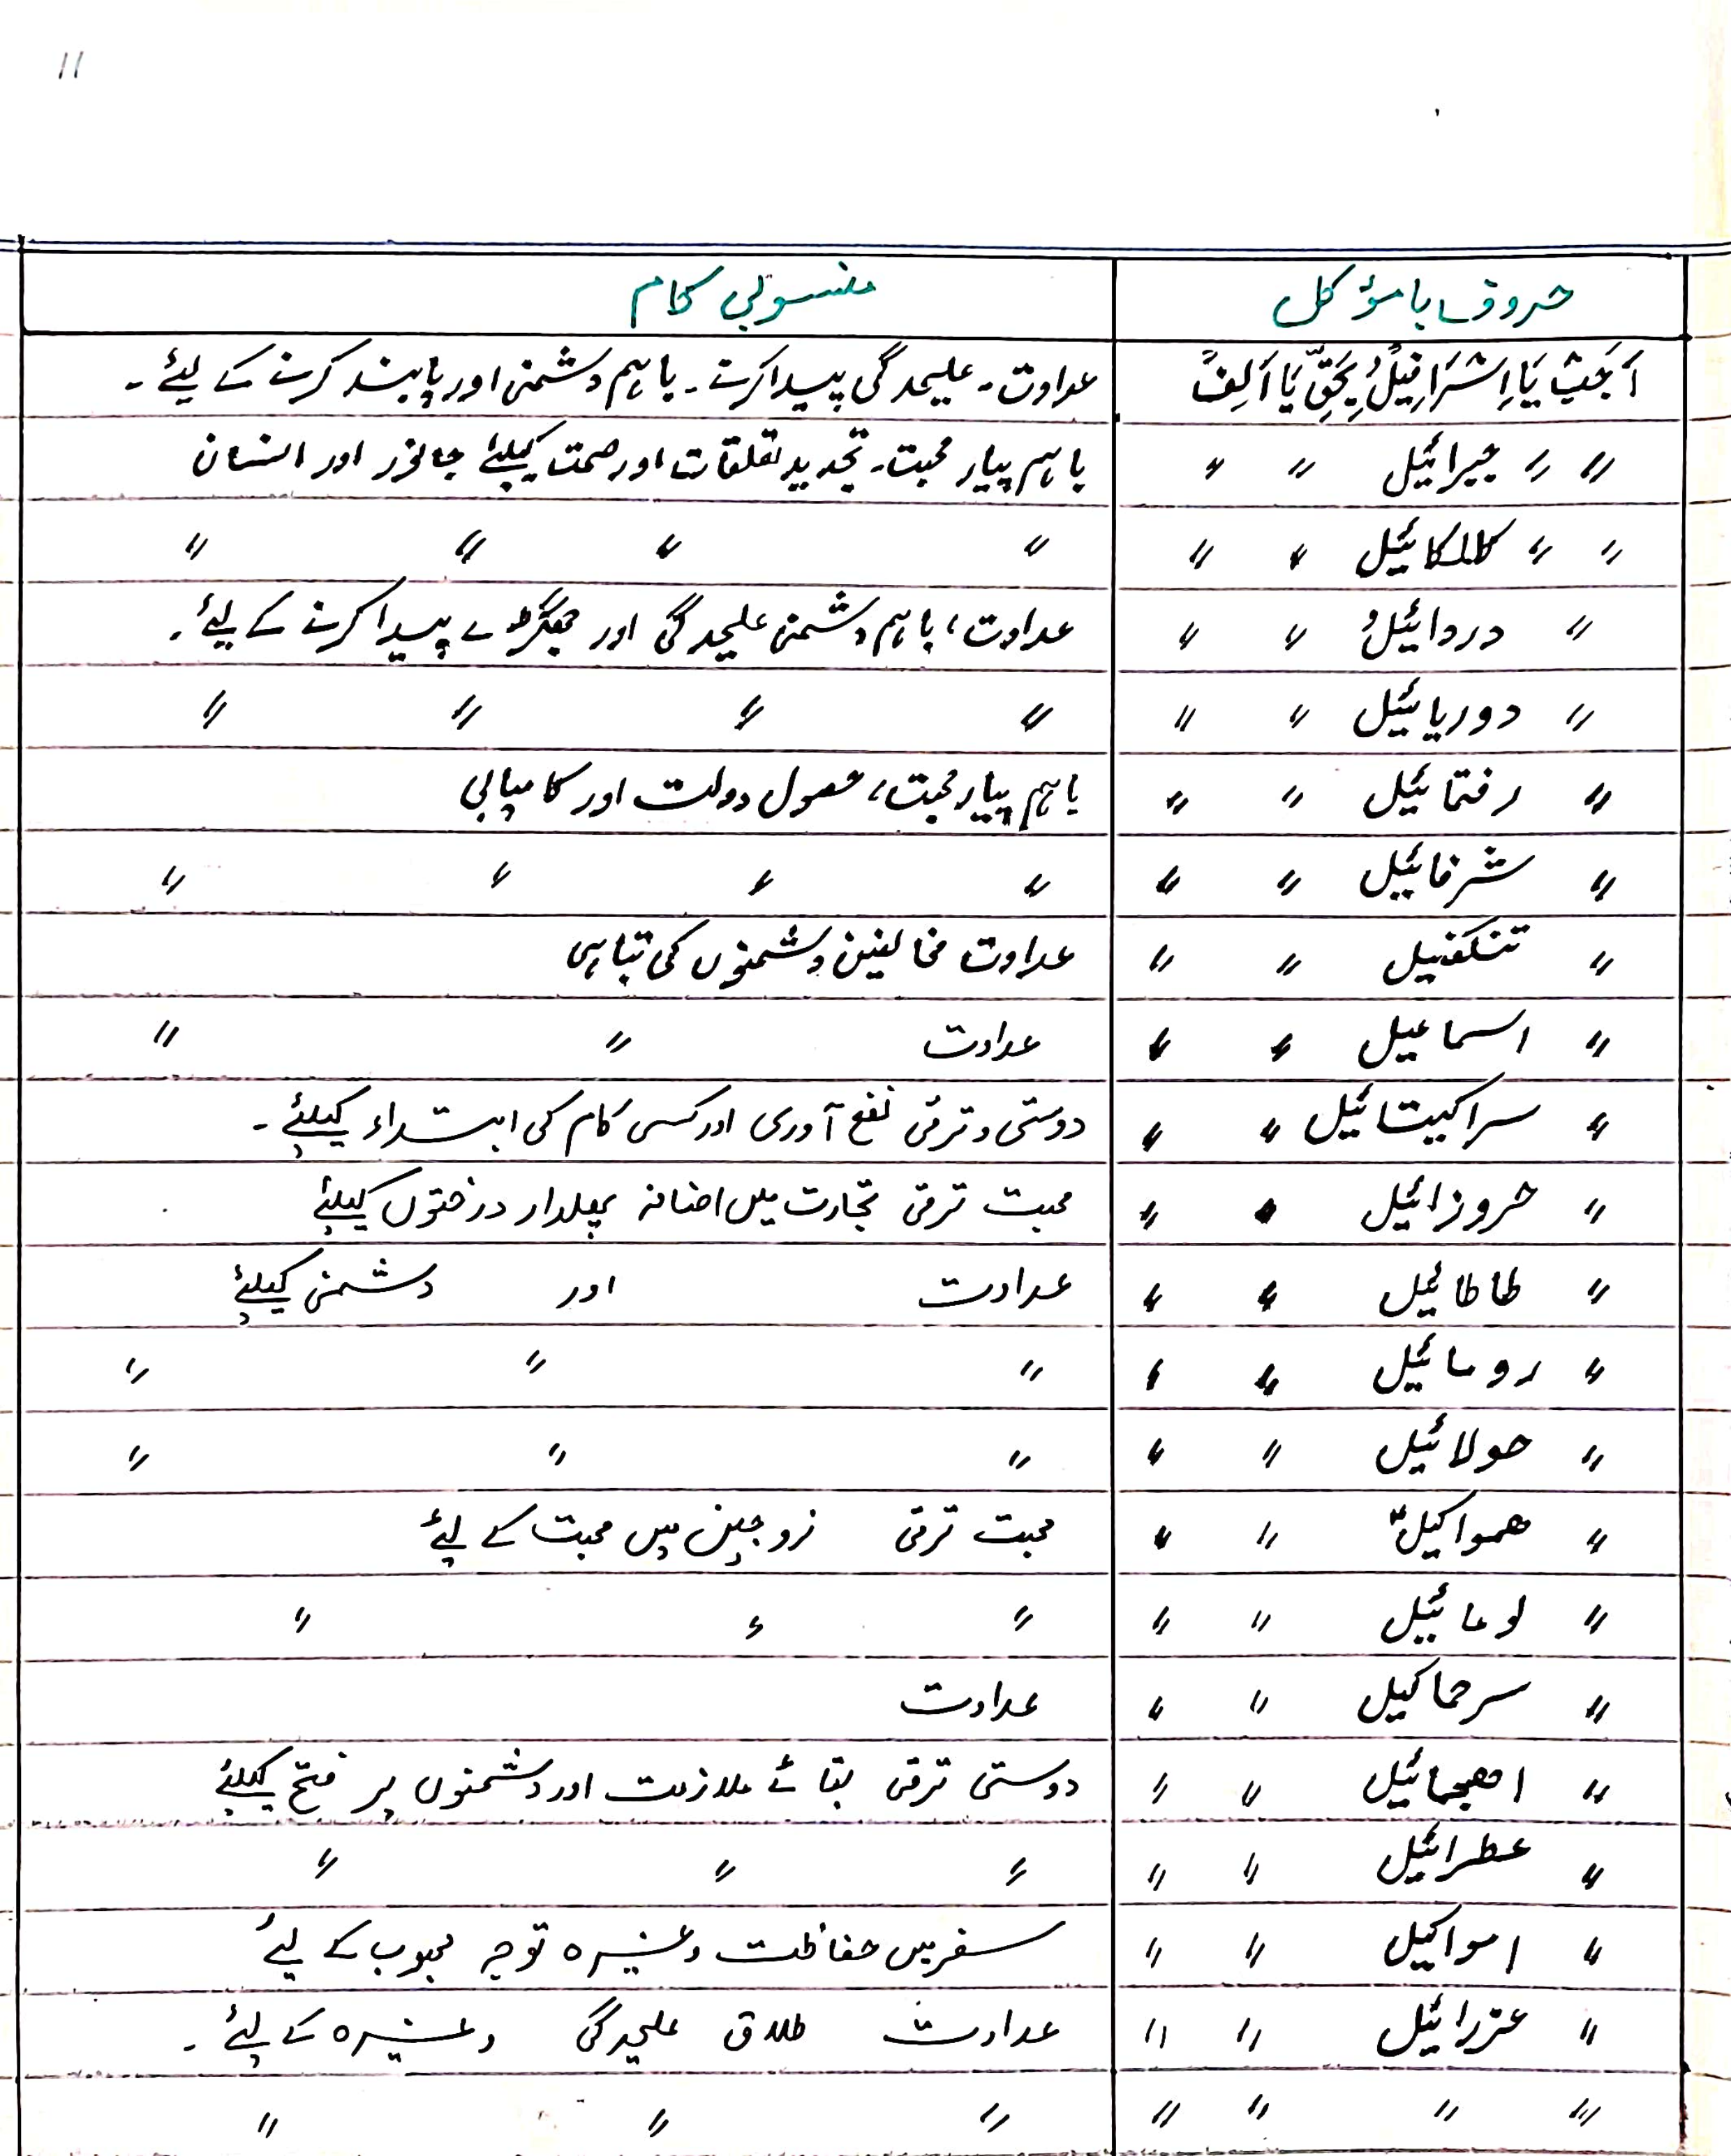 11
حروف بامؤکل منسوبی کام
اَجِبْ یَا اِسْرَافِیْلُ بِحَقِّ یَا اَلِفُ عداوت۔ علیحدگی پیدا کرنے۔ باہم دشمنی اور پابند کرنے کے لیئے۔
〃 〃 جبرائیل 〃 〃 باہم پیار محبت۔ تجدید تعلقات اور صحت کیلئے جانور اور انسان
〃 〃 کلکائیل 〃 〃 〃 〃 〃 〃
〃 دردائیلُ 〃 〃 عداوت، باہم دشمنی علیحدگی اور جھگڑے پیدا کرنے کے لیئے۔
〃 دوریائیل 〃 〃 〃 〃 〃 〃
〃 رفتمائیل 〃 〃 باہم پیار محبت، حصول دولت اور کامیابی
〃 شرفائیل 〃 〃 〃 〃 〃 〃
〃 تنکفیل 〃 〃 عداوت مخالفین دشمنوں کی تباہی
〃 اسماعیل 〃 〃 عداوت 〃 〃
〃 سراکیتائیل 〃 〃 دوستی و ترقی نفع آوری اور کسی کام کی ابتداء کیلئے۔
〃 حروزائیل 〃 〃 محبت ترقی تجارت میں اضافہ پھلدار درختوں کیلئے
〃 طاطائیل 〃 〃 عداوت اور دشمنی کیلئے
〃 رومائیل 〃 〃 〃 〃 〃
〃 حولائیل 〃 〃 〃 〃 〃
〃 ھمواکیل 〃 〃 محبت ترقی زوجین میں محبت کے لیئے
〃 لومائیل 〃 〃 〃 〃 〃
〃 سرحماکیل 〃 〃 عداوت
〃 اھجمائیل 〃 〃 دوستی ترقی بقائے ملازمت اور دشمنوں پر فتح کیلئے
〃 عطرائیل 〃 〃 〃 〃 〃
〃 امواکیل 〃 〃 سفر میں حفاظت وغیرہ توجہ محبوب کے لیئے
〃 عزرائیل 〃 〃 عداوت طلاق علیحدگی وغیرہ کے لیئے۔
〃 〃 〃 〃 〃 〃 〃